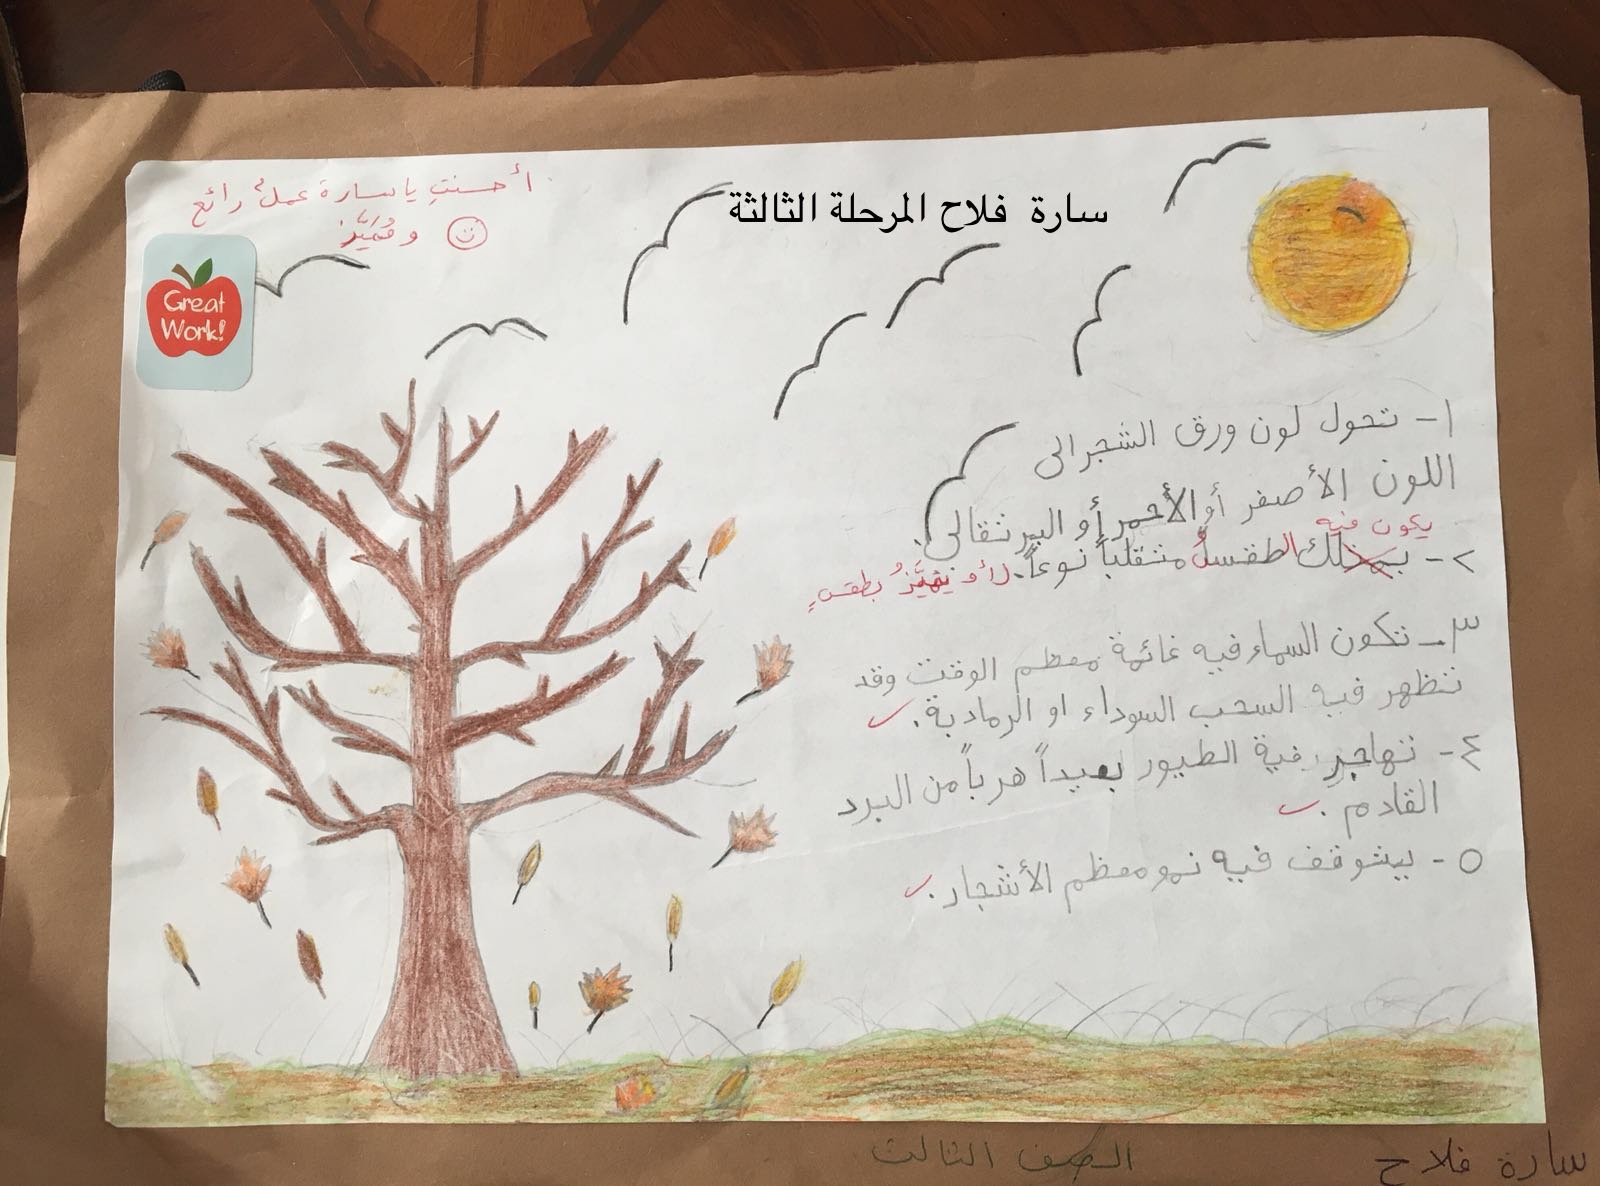 أحسنتِ يا سارة عملٌ رائع
ومُمَيَّز
Great
Work!
سارة فلاح المرحلة الثالثة
١- تحول لون ورق الشجر الى
اللون الأصفر أو الأحمر أو البرتقالي.
يكون فيه
٢- الطقسُ متقلباً نوعاً. أو يتميَّزُ بطقسٍ
٣- تكون السماء فيه غائمة معظم الوقت وقد
تظهر فيه السحب السوداء او الرمادية.
٤- تهاجر فية الطيور بعيداً هرباً من البرد
القادم.
٥- يتوقف فيه نمو معظم الأشجار.
سارة فلاح
الصف الثالث